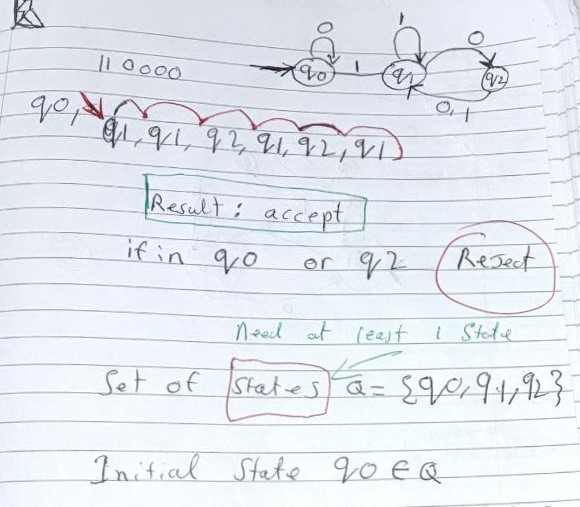 0 1 0
110000 q0 1 q1 q2
0,1
q0, q1, q1, q2, q1, q2, q1
Result: accept
if in q0 or q2 Reject
Need at least 1 State
Set of States Q = {q0, q1, q2}
Initial State q0 ∈ Q